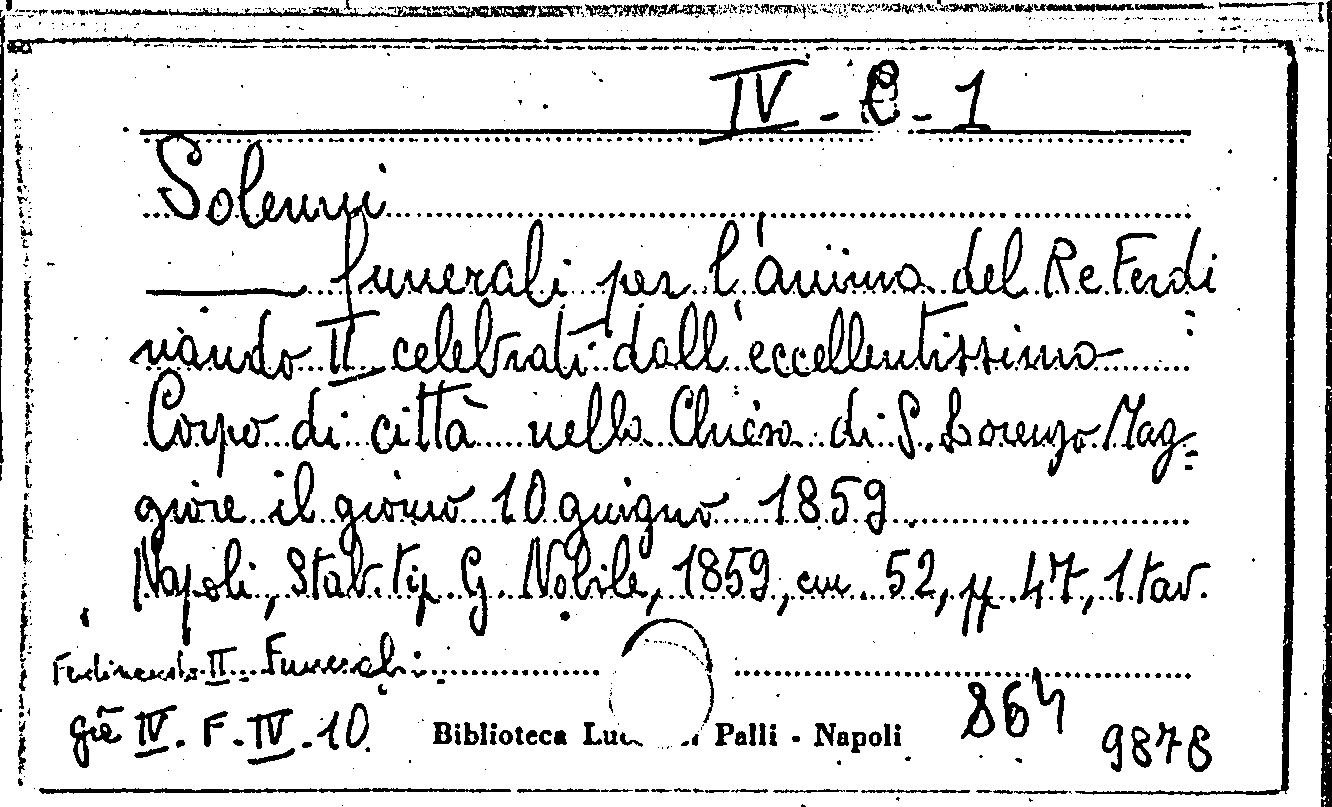 IV - C - 1
Solenni
funerali per l'anima del Re Ferdi
nando II celebrati dall'eccellentissimo
Corpo di città nella Chiesa di S. Lorenzo Mag=
giore il giorno 10 giugno 1859.
Napoli, Stab. tip. G. Nobile, 1859, cm. 52, pp. 47, 1 tav.
Ferdinando II - Funerali.
già IV. F. IV. 10.
Biblioteca Palli - Napoli
864
9878